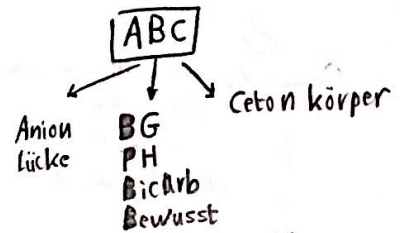 ABC
Anion
Lücke
BG
PH
Bicarb
Bewusst
Ceton körper